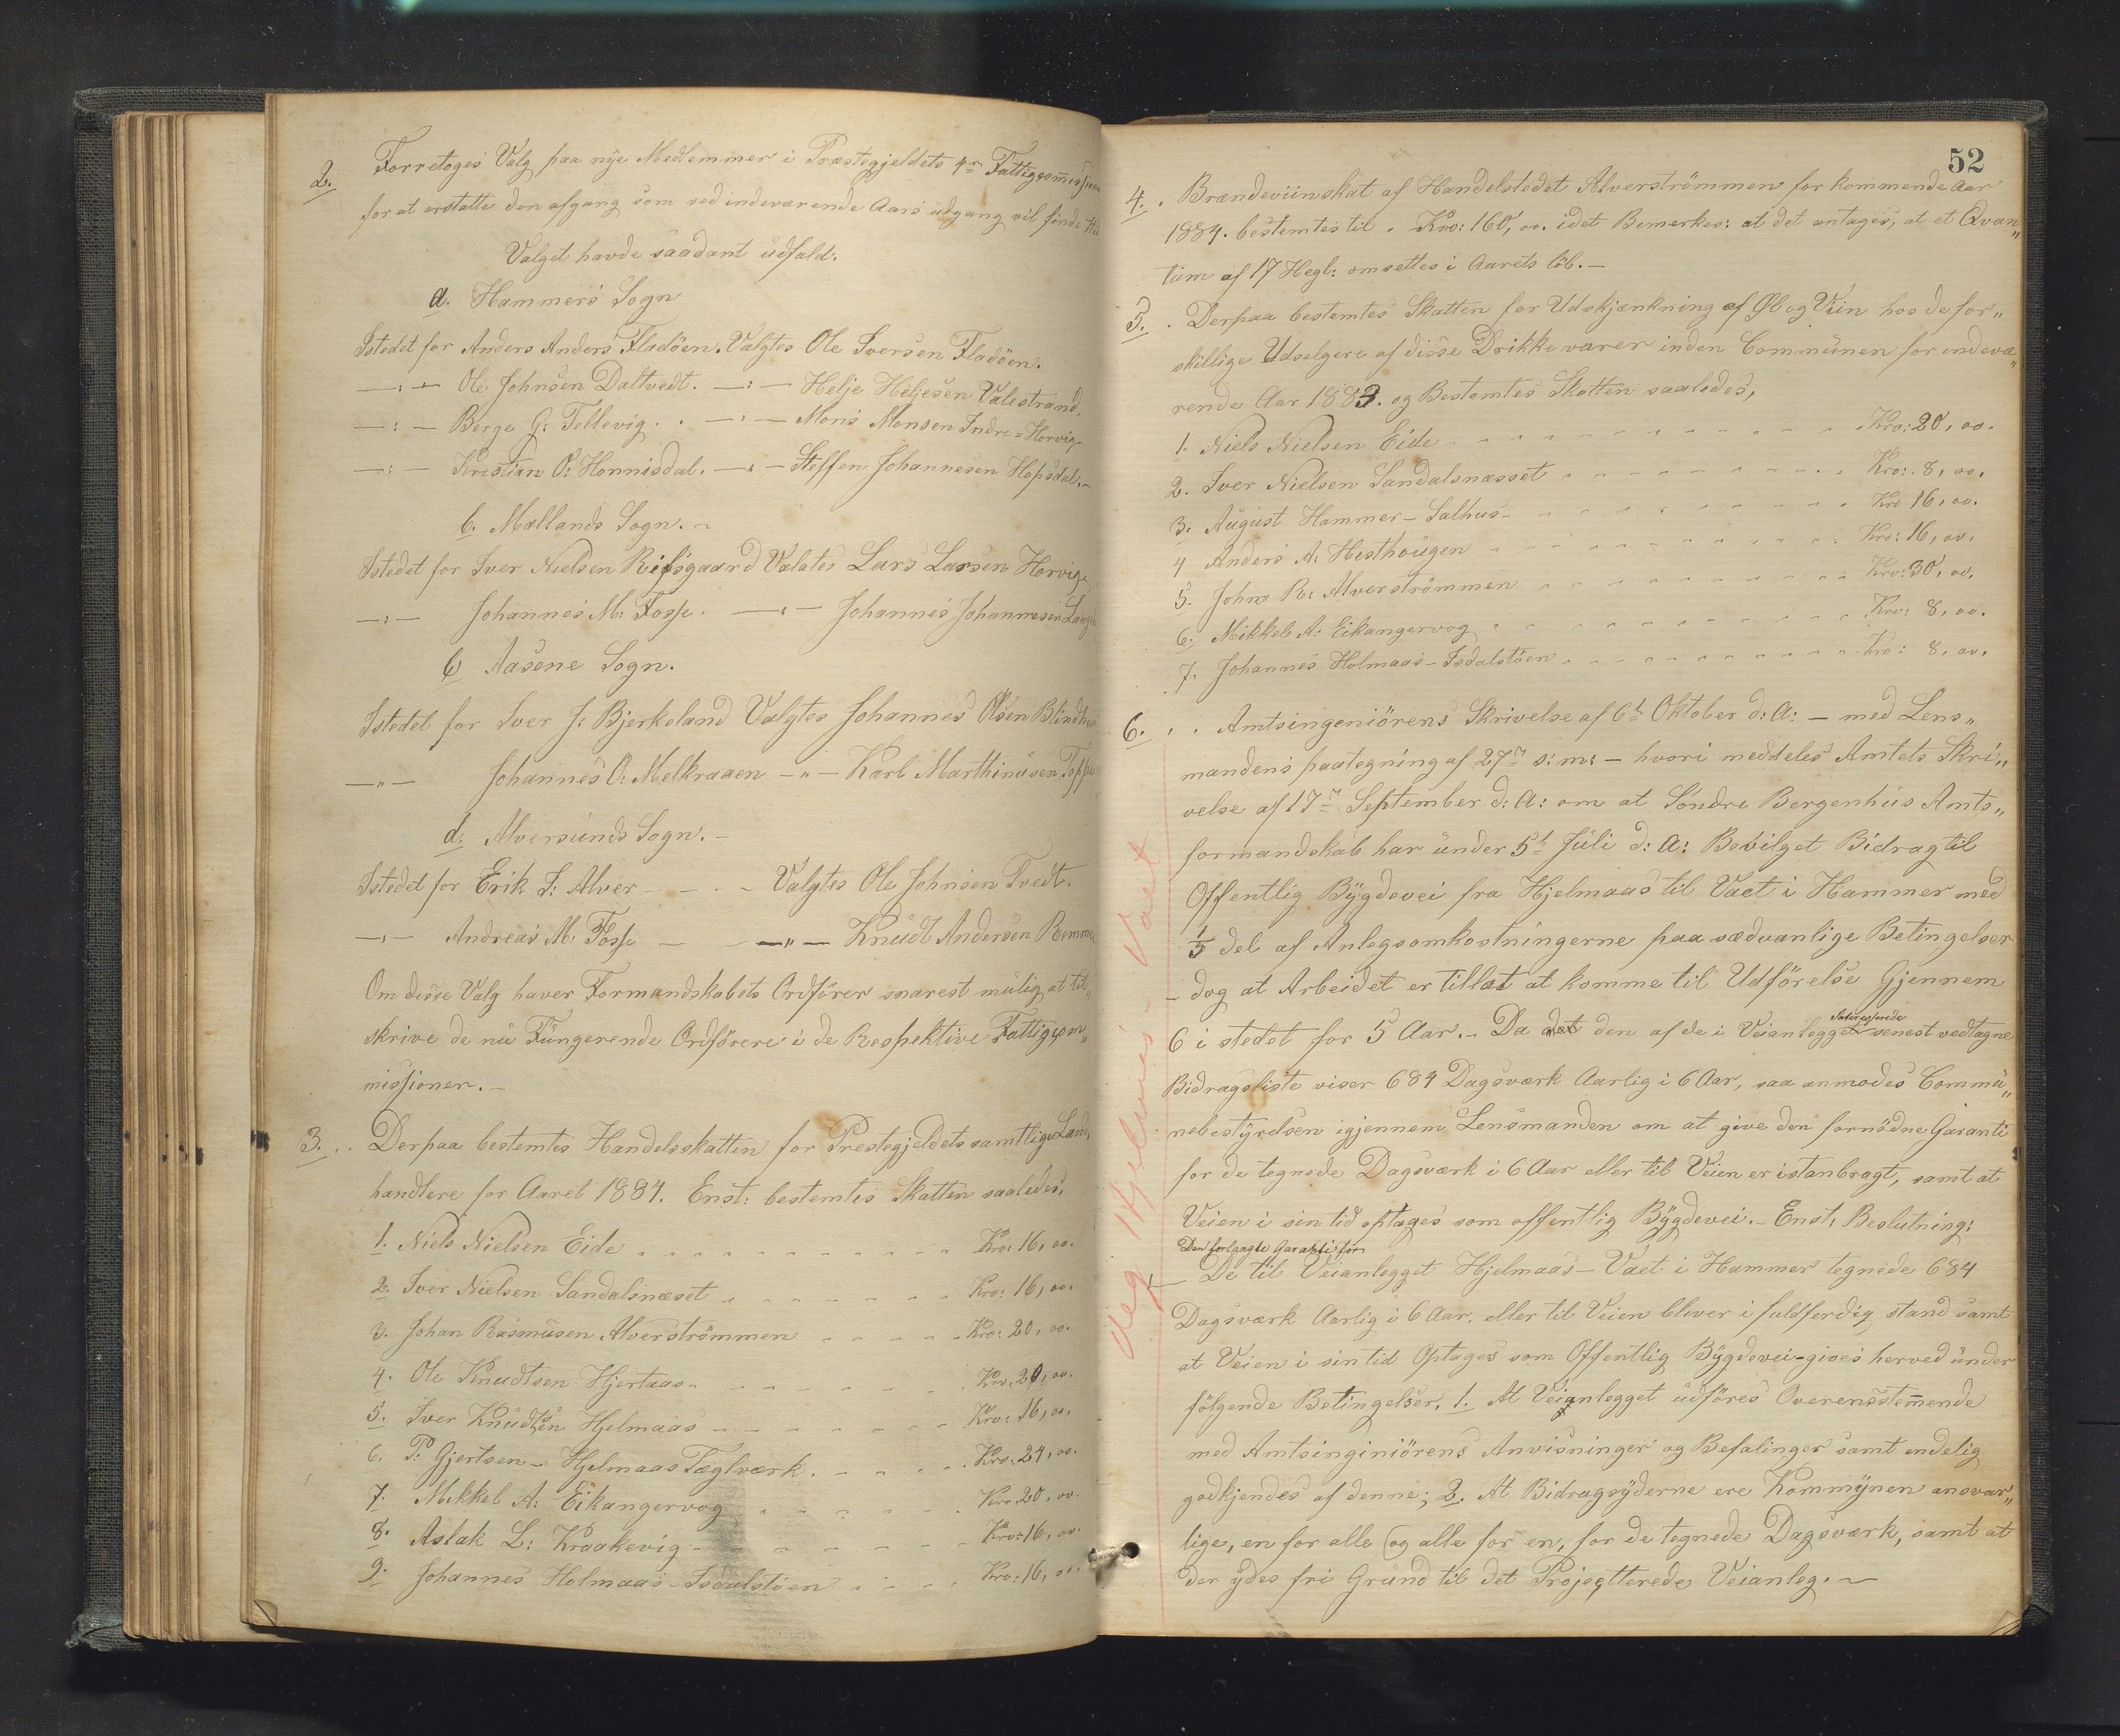 2. Forretoges Valg paa nye Medlemmer i Præstegjeldets 4re Fattigcommission
for at erstatte den afgang som ved indeværende Aars udgang vil finde sted
Valget havde saadant udfald.
a. Hammers Sogn
Istedet for Anders Anders Fladöen. Valgtes Ole Iversen Fladöen.
—:— Ole Johnsen Daltvedt. —:— Helje Heljesen Valestrand.
—:— Berge G: Tellevig. . —:— Mons Monsen Indre=Horvig
—:— Kristian O: Honnisdal. —:— Steffen Johannesen Hopsdal.—
b. Mællands Sogn.—
Istedet for Iver Nielsen Risgaard Valgtes Lars Larsen Horvig
—:— Johannes M: Fosse. —:— Johannes Johannesen
c Aasene Sogn.
Istedet for Iver J: Bjerkeland Valgtes Johannes Olsen Blindheim
—"— Johannes O: Melkraaen —"— Karl Marthinusen Toppe
d: Alversunds Sogn.—
Istedet for Erik I: Alver - - . - Valgtes Ole Johnsen Tvedt.
—:— Andreas M: Fosse — - —"— Knudt Andersen
Om disse Valg haver Formandskabets Ordförer snarest mulig at til"
skrive de nu Fungerende Ordförere i de Respektive Fattigcom"
missioner.—
3. . . Derpaa bestemtes Handelsskatten for Prestegjeldets samtlige Land"
handlere for Aaret 1884. Enst: bestemtes Skatten saaledes,
1. Niels Nielsen Eide . . . . . . . . . . . . Kro: 16,00.
2. Iver Nielsen Sandalsnæset . . . . . . . . Kro: 16,00.
3. Johan Rasmusen Alverströmmen . . . . . Kro: 20,00.
4. Ole Knudtsen Hjertaas . . . . . . . . . Kro: 20,00.
5. Iver Knudtsen Hjelmaas . . . . . . . . Kro: 16,00.
6. P: Gjertsen — Hjelmaas Tæglværk . . . . . Kro: 24,00.
7. Mikkel A: Eikangervog . . . . . . . Kro 20,00.
8. Aslak L: Kraakevig . . . . . . . . . Kro: 16,00.
9. Johannes Holmaas — Isdalstöen . . . . . Kro: 16,00.
52
4. . Brændeviinskat af Handelstedet Alverströmmen for kommende Aar
1884. bestemtes til . Kro: 160,00. idet Bemerkes: at det antages, at et Qvan"
tum af 17 Hegl: omsettes i Aarets löb.—
5. . Derpaa bestemtes Skatten for Udskjænkning af Øl og Viin hos de for"
skillige Udselgere af disse Drikkevarer inden Communen for indevæ"
rende Aar 1883. og Bestemtes Skatten saaledes,
1. Niels Nielsen Eide . . . . . . . . . . . . Kro: 20,00.
2. Iver Nielsen Sandalsnæsset . . . . . . . . Kro: 8,00.
3. August Hammer — Salhus — . . . . . . . . Kro 16,00.
4 Anders A: Hesthougen . . . . . . . . . . Kro: 16,00.
5. John R: Alverströmmen . . . . . . . . . Kro: 30,00.
6. Mikkel A: Eikangervog . . . . . . . . . . Kro: 8,00.
7. Johannes Holmaas — Isdalstöen . . . . . . . . Kro: 8,00.
6. . . Amtsingeniörens Skrivelse af 6t Oktober d: A: — med Lens"
mandens paategning af 27n s: m: — hvori meddeles Amtets Skri"
velse af 17n September d: A: om at Söndre Bergenhus Amts"
formandskab har under 5t Juli d: A: Bevilget Bidrag til
Offentlig Bÿgdevei fra Hjelmaas til Vaet i Hammer med
1/5 del af Anlegsomkostningerne paa sædvanlige Betingelser
— dog at Arbeidet er tillat at komme til Udförelse Gjennem
6 i stedet for 5 Aar.— Da det den af de i Veianlegget Interesserede senest vedtagne
Bidragsliste viser 684 Dagsværk Aarlig i 6 Aar, saa anmodes Commu"
nebestÿrelsen igjennem Lensmanden om at give den fornödne Garanti
for de tegnede Dagsværk i 6 Aar eller til Veien er istanbragt, samt at
Veien i sin tid optages som offentlig Bÿgdevei.— Enst, Beslutning:
Den forlangte Garanti for
De til Veianlegget Hjelmaas — Vaet i Hammer tegnede 684
Dagsværk Aarlig i 6 Aar, eller til Veien bliver i fuldferdig stand samt
at Veien i sin tid Optages som Offentlig Bÿgdevei — gives herved under
fölgende Betingelser. 1. At Veianlegget udföres Overensstemmende
med Amtsinginiörens Anvisninger og Befalinger samt endelig
godkjendes af denne; 2. At Bidragsÿderne ere Kommÿnen ansvar"
lige, en for alle og alle for en, for de tegnede Dagsværk, samt at
der ÿdes fri Grund til det Projectterede Veianleg.—